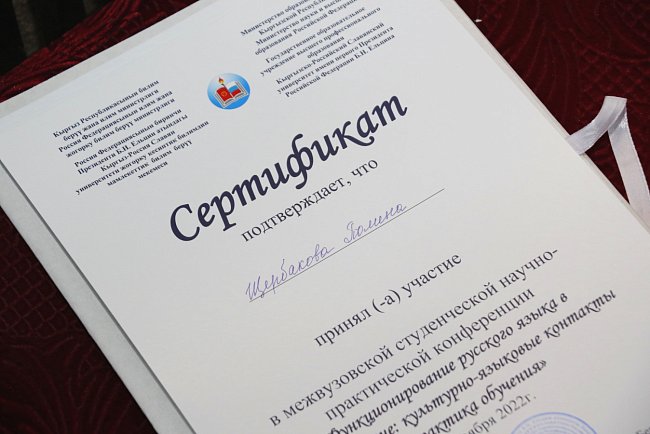 Кыргыз Республикасынын билим
берүү жана илим министрлиги
Россия Федерациясынын илим жана
жогорку билим берүү министрлиги
Россия Федерациясынын биринчи
Президенти Б.Н. Ельцин атындагы
Кыргыз-Россия Славян
университети жогорку кесиптик билимдин
мамлекеттик билим берүү
мекемеси
Министерство образования
Кыргызской Республики
Министерство науки и высшего
образования Российской Федерации
Государственное образовательное
учреждение высшего профессионального
образования
Кыргызско-Российский Славянский
университет имени первого Президента
Российской Федерации Б.Н. Ельцина
Сертификат
подтверждает, что
Щербакова Полина
принял (-а) участие
в межвузовской студенческой научно-
практической конференции
русского языка в
культурно-языковые контакты
обучения»
2022г.